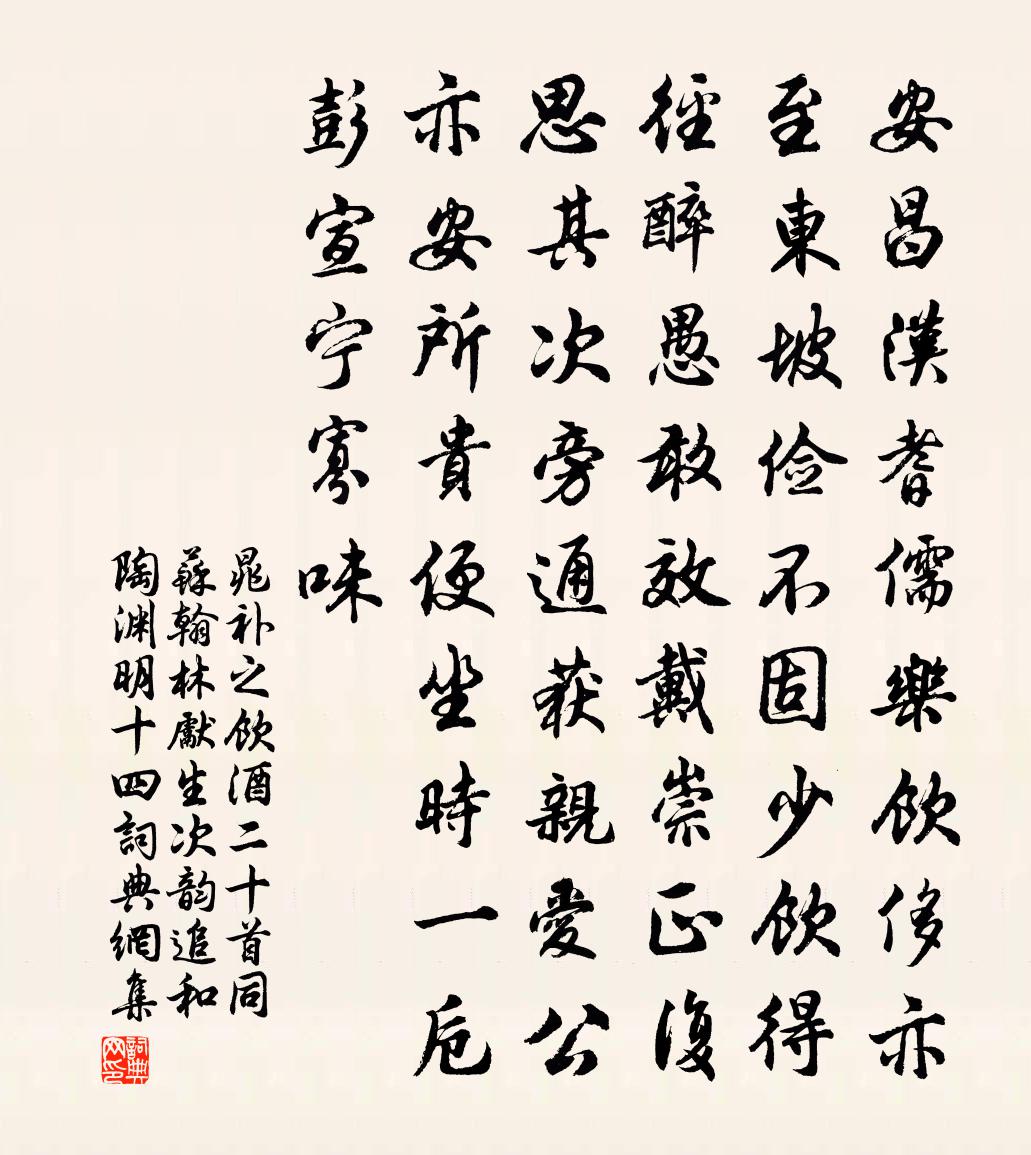 安昌漢耆儒樂飲侈亦
至東坡俭不固少飲得
徑醉愚敢效戴崇正復
思其次旁通获親愛公
亦安所貴便坐時一卮
彭宣宁寡味
晁补之飲酒二十首同
蘇翰林獻生次韵追和
陶渊明十四詞典網集
詞典网印